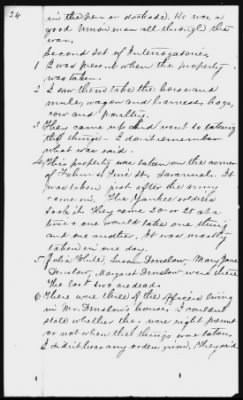 24
in the pen or stockade. He was a
good Union man all through the
war.
Second Set of Interrogatories
1 I was present when the property
was taken.
2 I saw them take the horse and
mule, wagon and harness, hogs,
cow and poultry.
3 They came up and went to taking
the things. I do not remember
what was said.
4 This property was taken on the corner
of John & Pine Sts, Savannah. It
was taken just after the army
came in. The Yankee soldiers
took it. They came 20 or 25 at a
time & one would take one thing
and one another. It was mostly
taken in one day.
5 Julia White, Susan Denslow, Mary Jane
Denslow, Margaret Denslow were there
the last two are dead.
6 There were three of the officers living
in Mr. Denslow's house. I couldn't
state whether they were right present
or not when the things was taken.
I didn't hear any orders given. They did